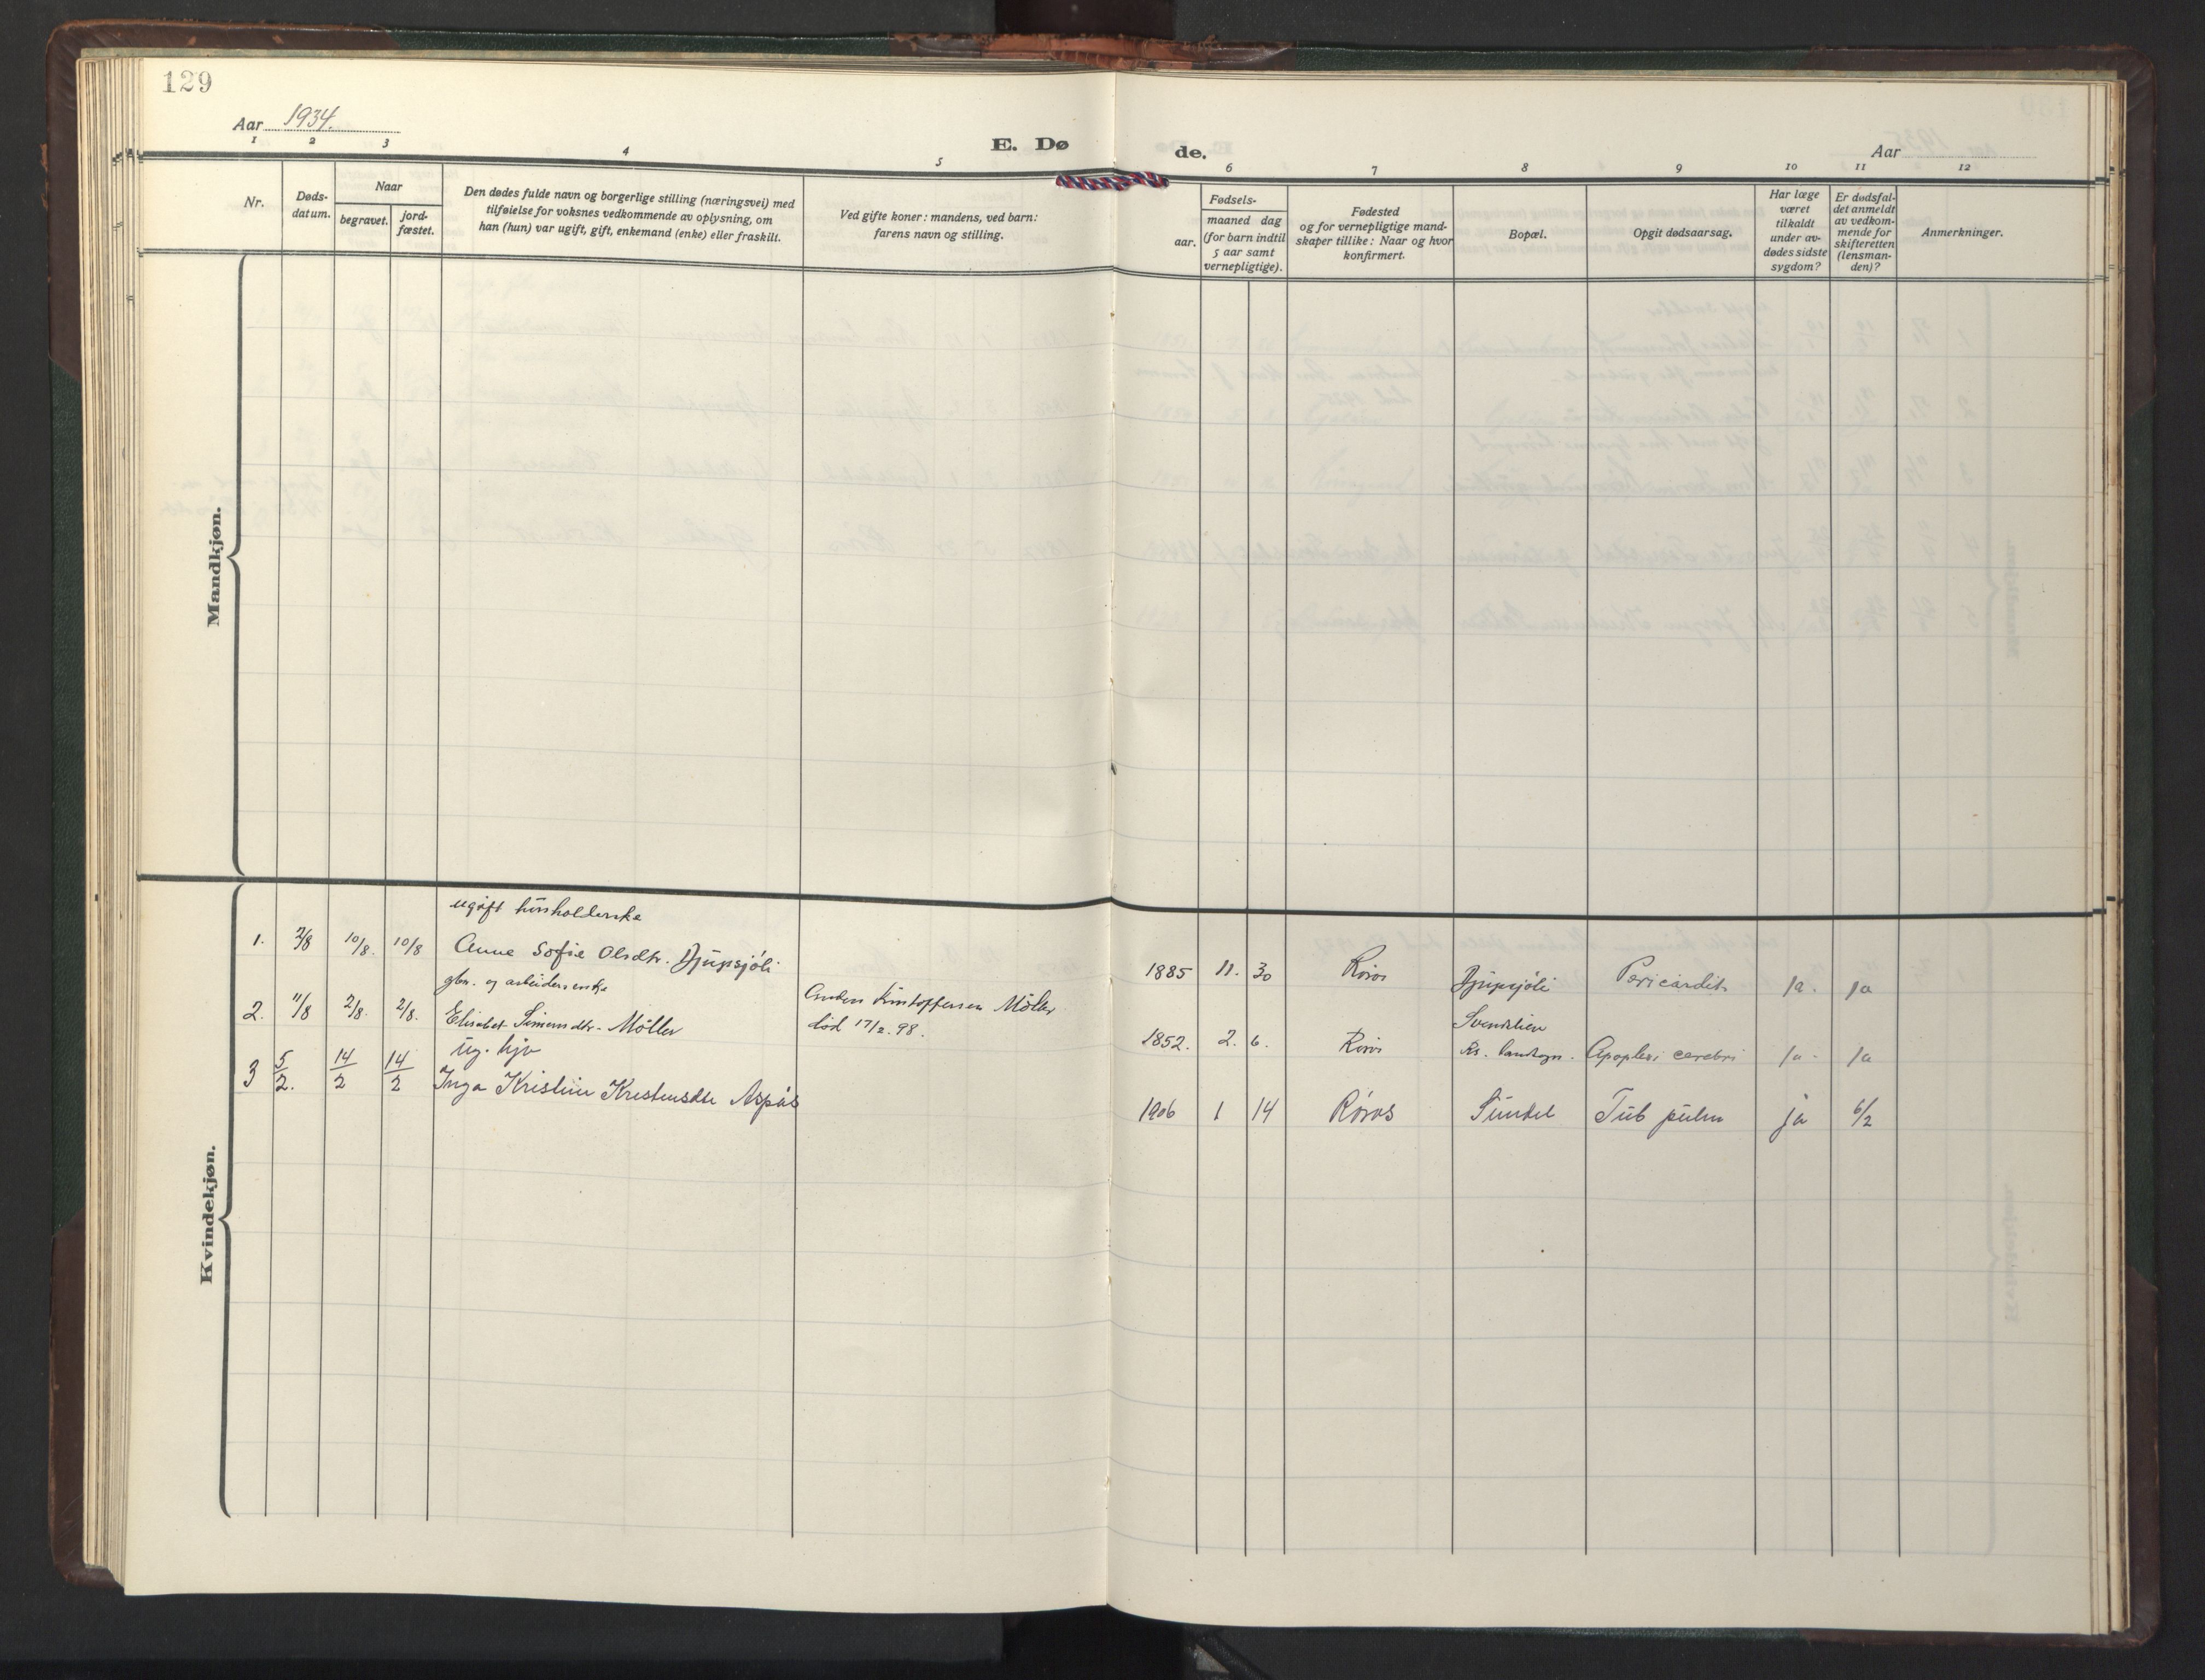 129
Aar 1934.
E. Dø
de.
Aar
1 2 3 4 5 6 7 8 9 10 11 12
Nr.
Døds-
datum.
Naar
begravet.
jord-
fæstet.
Den dødes fulde navn og borgerlige stilling (næringsvei) med
tilføielse for voksnes vedkommende av oplysning, om
han (hun) var ugift, gift, enkemand (enke) eller fraskilt.
Ved gifte koner: mandens, ved barn:
farens navn og stilling.
Fødsels-
aar.
maaned dag
(for barn indtil
5 aar samt
vernepligtige).
Fødested
og for vernepligtige mand-
skaper tillike: Naar og hvor
konfirmert.
Bopæl.
Opgit dødsaarsag.
Har læge
været
tilkaldt
under av-
dødes sidste
sygdom?
Er dødsfal-
det anmeldt
av vedkom-
mende for
skifteretten
(lensman-
den)?
Anmerkninger.
Mandkjøn.
Kvindekjøn.
ugift husholderske
1. 2/8 10/8. 10/8 Anne Sofie Olsdtr. Djupsjöli 1885 11. 30 Röros Djupsjöli Pericardit ja. ja
gbr. og arbeiderenke
2. 11/8 2/8. 2/8. Elisabet Simensdtr. Möller
Anders Kristoffersen Möller
död 17/2. 98.
1852. 2. 6. Röros
Svendslien
Rs. landsogn.
Apoplexi cerebri ja. ja
ug. hjv
3 5/2. 14/2 14/2 Inga Kristine Kristensdtr Aspås 1906 1 14 Röros Sundet Tub pulm ja 6/2